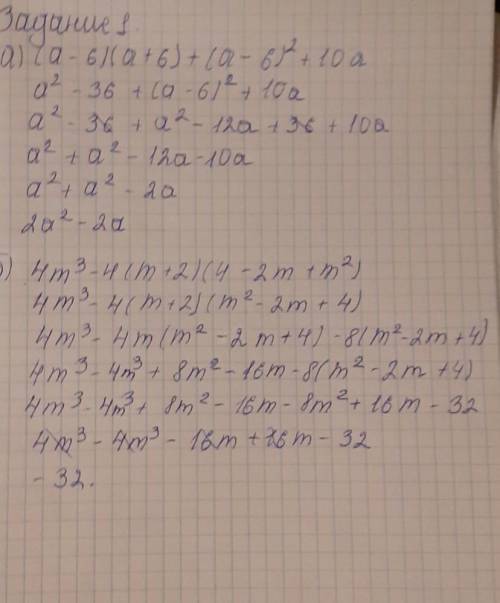 Задание 1
а) (a - 6)(a + 6) + (a - 6)² + 10a
a² - 36 + (a - 6)² + 10a
a² - 36 + a² - 12a + 36 + 10a
a² + a² - 12a - 10a
a² + a² - 2a
2a² - 2a
б) 4m³ - 4(m + 2)(4 - 2m + m²)
4m³ - 4(m + 2)(m² - 2m + 4)
4m³ - 4m(m² - 2m + 4) - 8(m² - 2m + 4)
4m³ - 4m³ + 8m² - 16m - 8(m² - 2m + 4)
4m³ - 4m³ + 8m² - 16m - 8m² + 16m - 32
4m³ - 4m³ - 16m + 16m - 32
- 32.